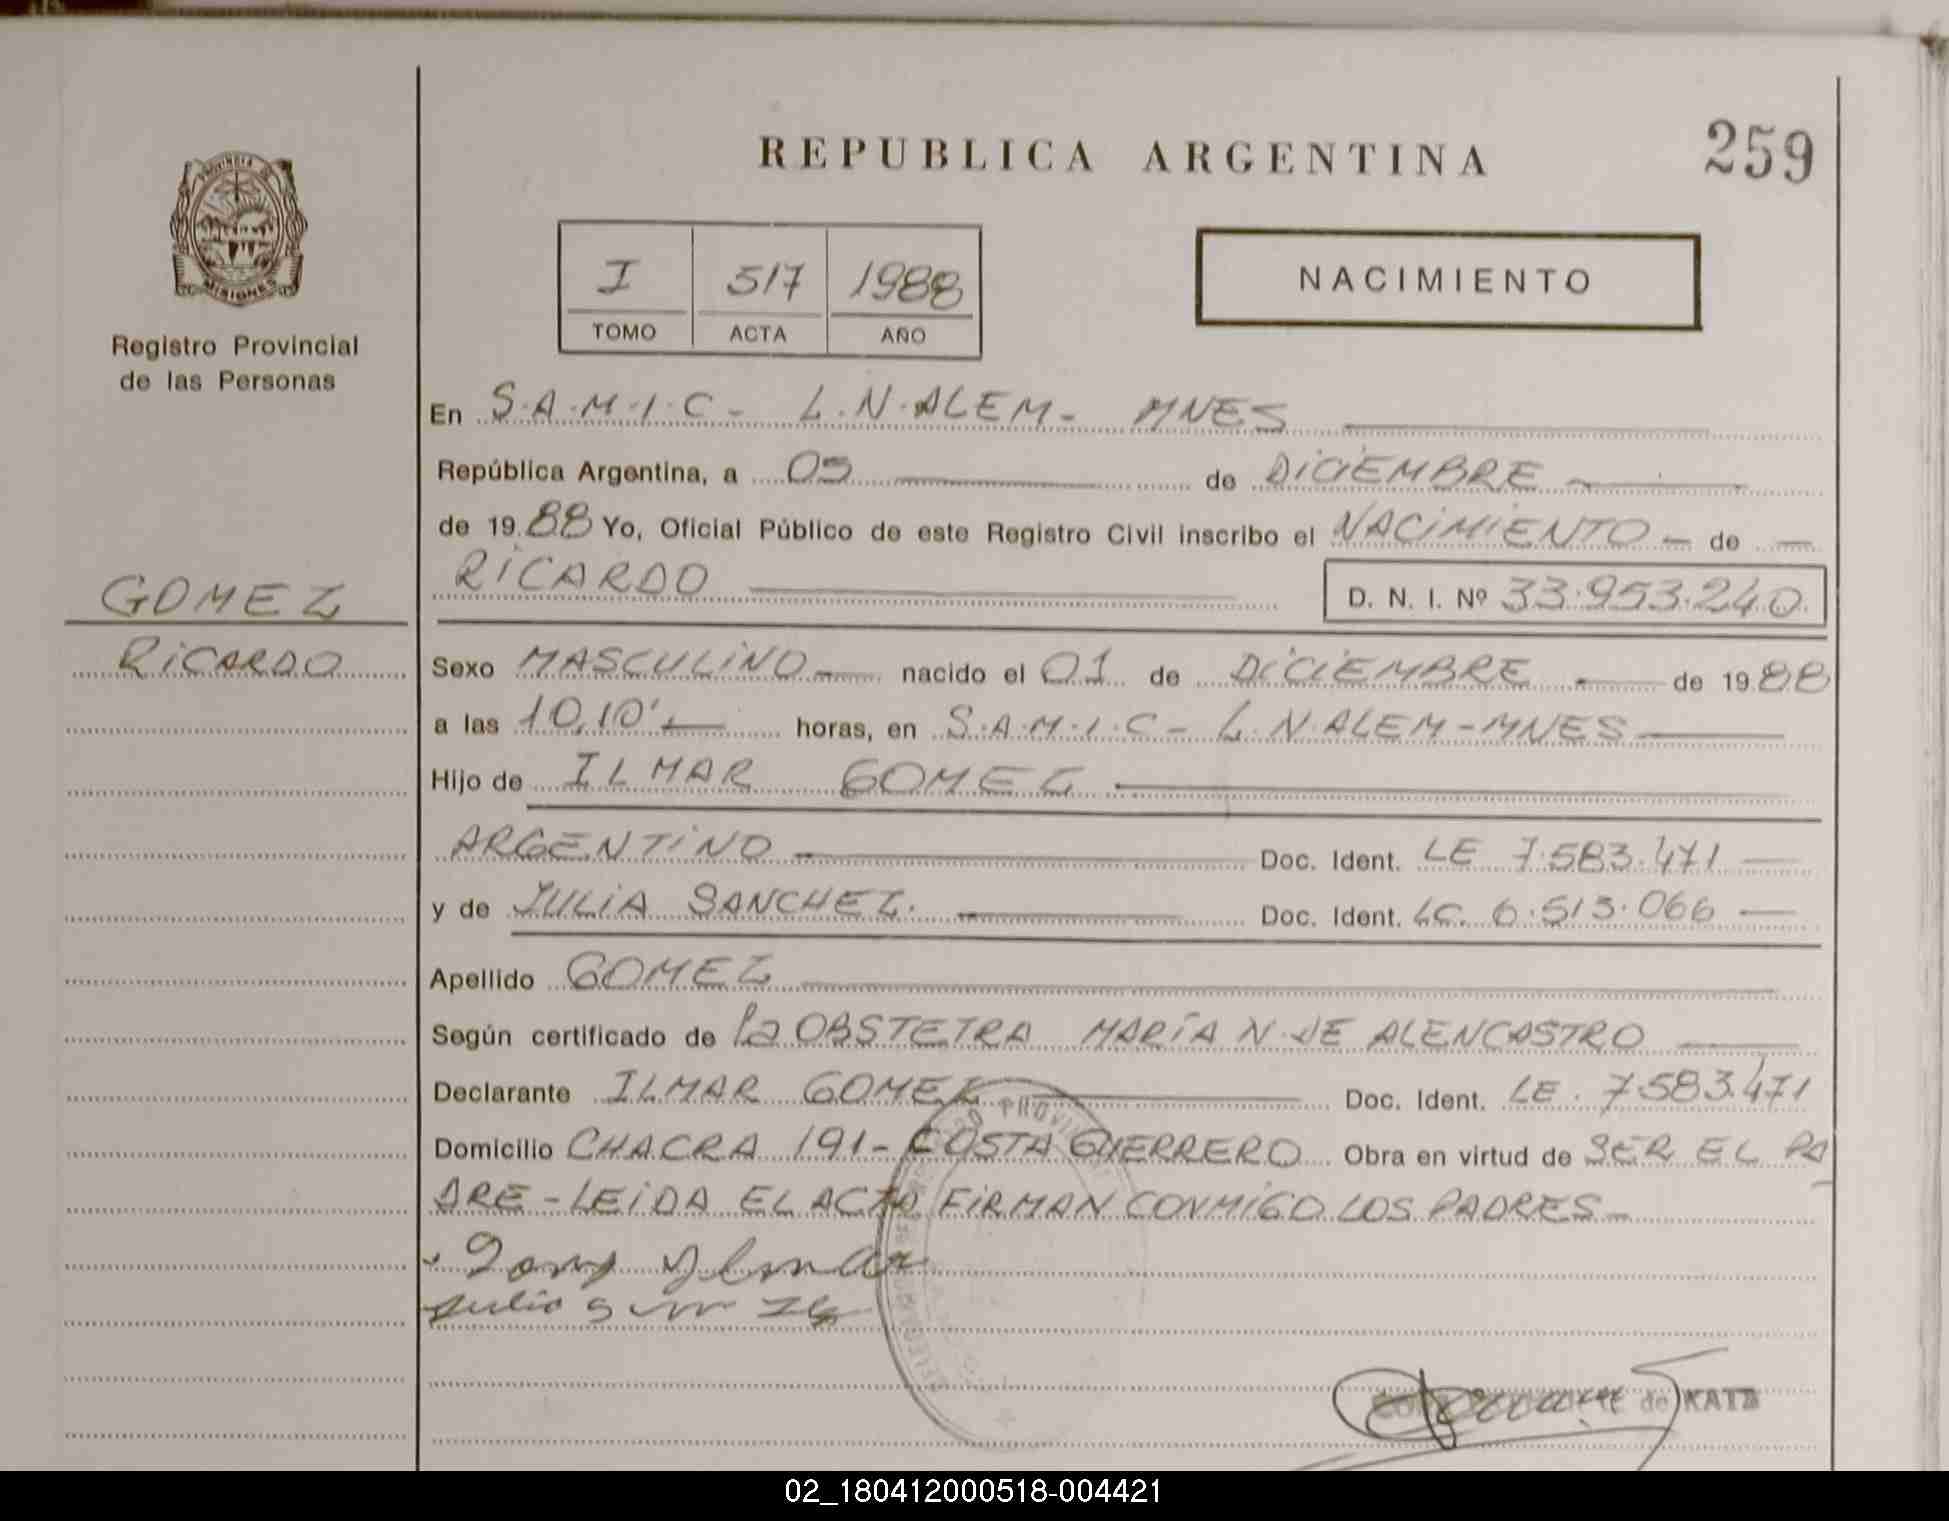 REPUBLICA ARGENTINA
259
PROVINCIA DE
MISIONES
Registro Provincial
de las Personas
I 517 1988
TOMO ACTA AÑO
NACIMIENTO
En S.A.M.I.C - L.N.ALEM - MNES
República Argentina, a 05 de DICIEMBRE
de 19 88 Yo, Oficial Público de este Registro Civil inscribo el NACIMIENTO - de
RICARDO D. N. I. Nº 33.953.240
GOMEZ
RICARDO
Sexo MASCULINO nacido el 01 de DICIEMBRE de 19 88
a las 10,10' horas, en S.A.M.I.C - L.N.ALEM - MNES
Hijo de ILMAR GOMEZ
ARGENTINO Doc. Ident. LE 7.583.471
y de JULIA SANCHEZ. Doc. Ident. LC. 6.513.066
Apellido GOMEZ
Según certificado de la OBSTETRA MARÍA N. DE ALENCASTRO
Declarante ILMAR GOMEZ Doc. Ident. LE. 7.583.471
Domicilio CHACRA 191 - COSTA GUERRERO Obra en virtud de SER EL PA
DRE - LEIDA EL ACTA FIRMAN CONMIGO LOS PADRES -
de KATZ
02_180412000518-004421